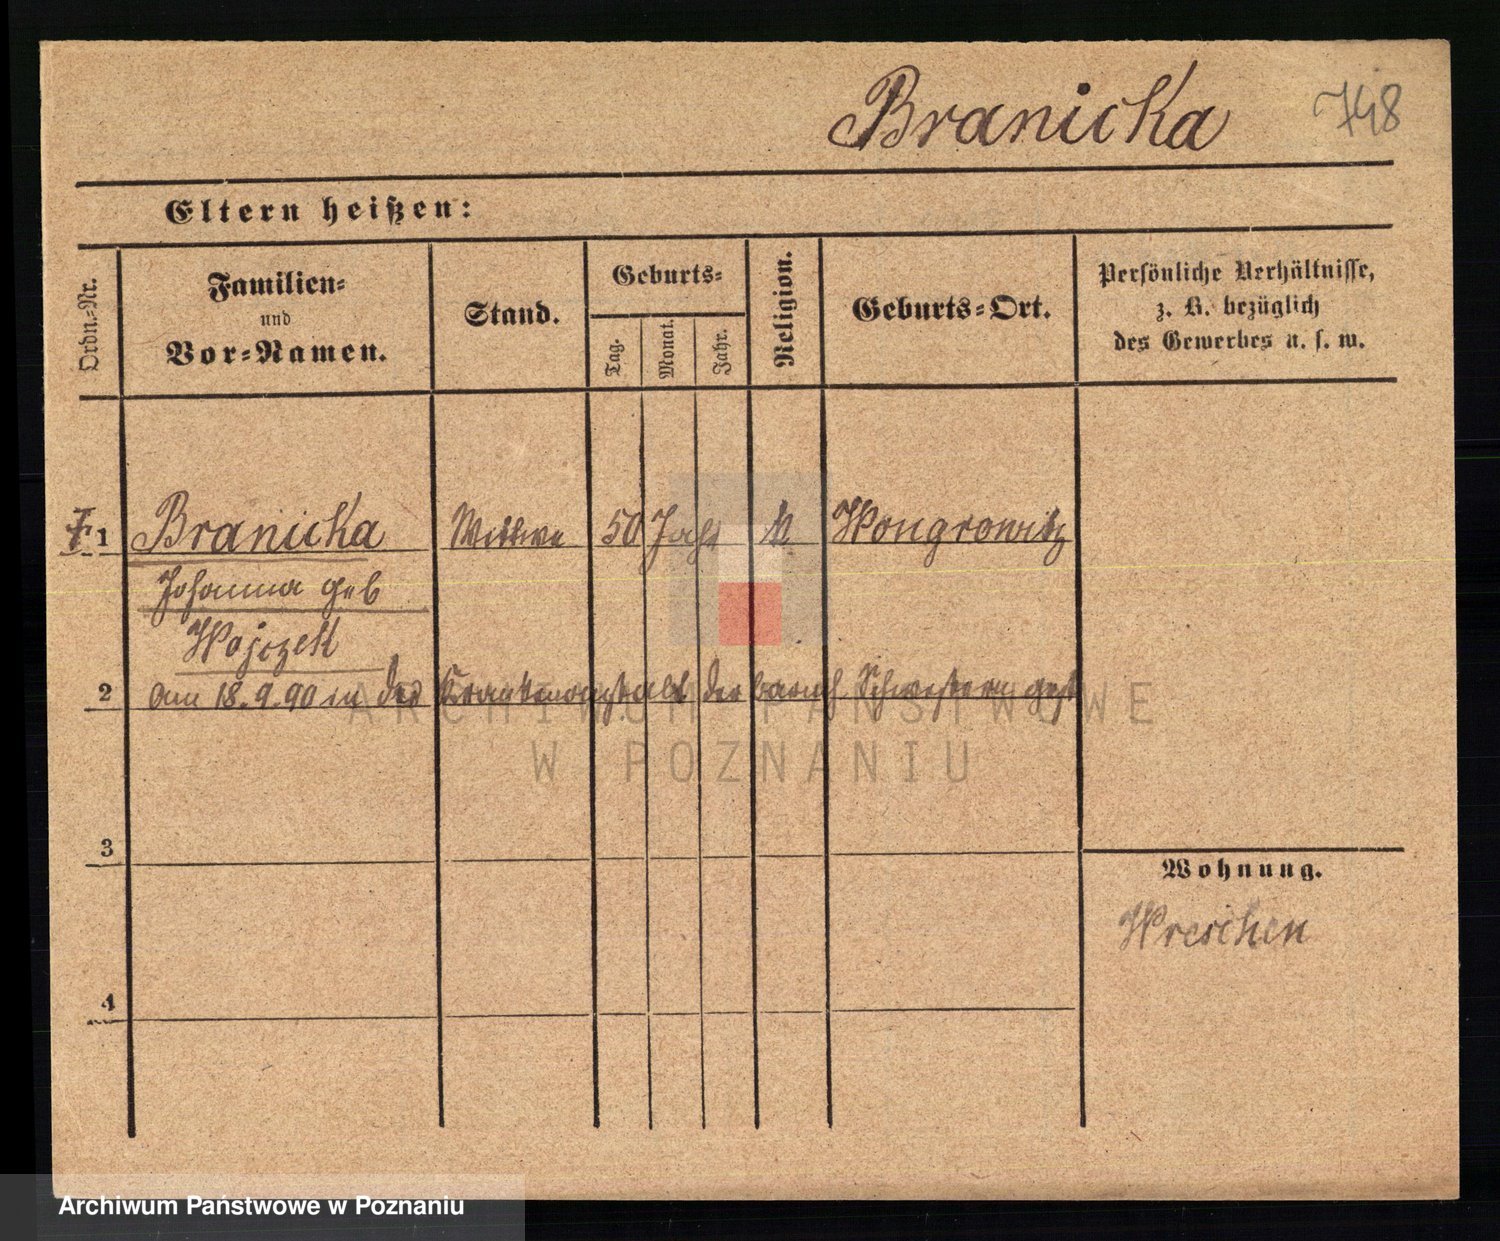 Branicka 748
Eltern heißen:
Ordn.-Nr.
Familien-
und
Vor-Namen.
Stand.
Geburts-
Tag.
Monat.
Jahr.
Religion.
Geburts-Ort.
Persönliche Verhältnisse,
z. B. bezüglich
des Gewerbes u. s. w.
1 Branicka Wittwe 50 Jahr k Wongrowitz
Johanna geb
Wojczek
2 am 18.9.90 in der Krankenanstalt der barmh Schwestern gest
3
Wohnung.
Wreschen
4
ARCHIWUM PAŃSTWOWE
W POZNANIU
Archiwum Państwowe w Poznaniu